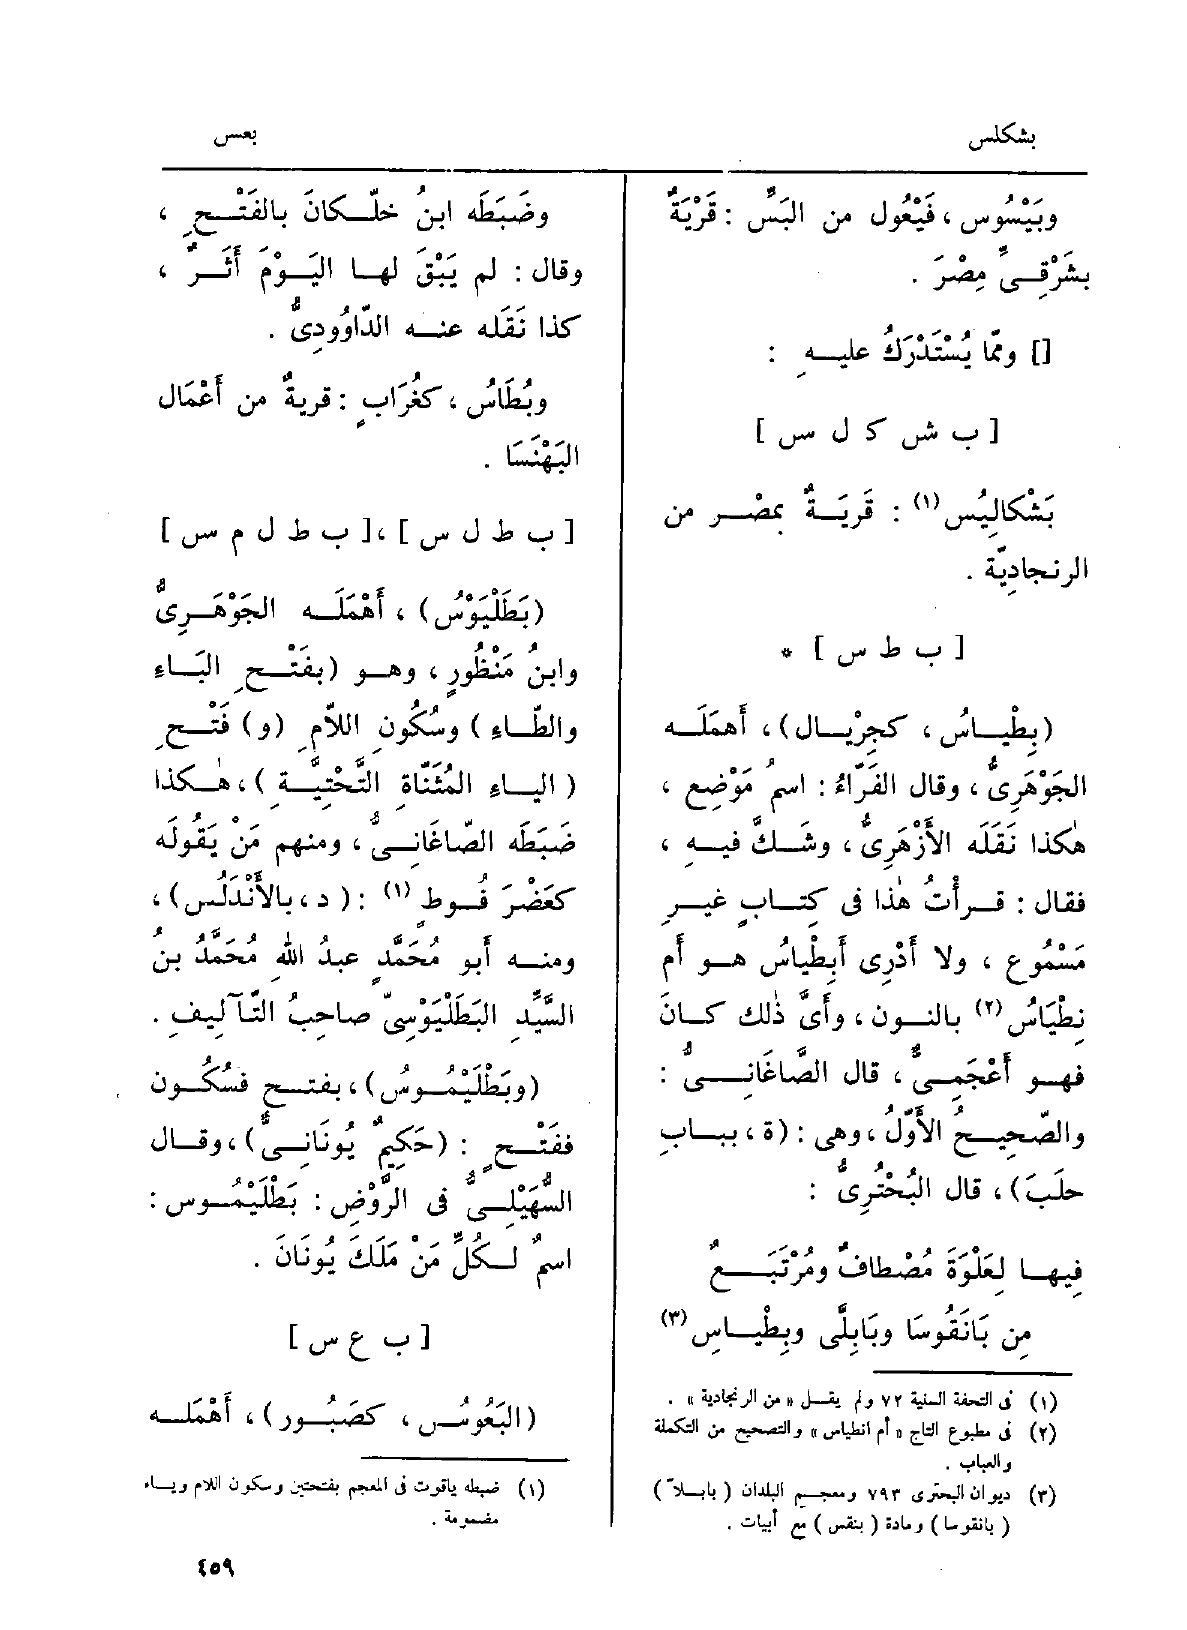 بشكلس
بعس
وبَيْسُوس ، فَيْعُول من البَسِّ : قَرْيَةٌ
بشَرْقِىِّ مِصْرَ .
[] وممّا يُسْتَدْرَكُ عليه :
[ ب ش ك ل س ]
بَشْكالِيُس (١) : قَريَةٌ بمصْر من
الرنجادِيّة .
[ ب ط س ] *
(بِطْياسُ ، كجِرْيال) ، أَهمَلَه
الجَوْهَرِىُّ ، وقال الفَرّاءُ : اسمُ مَوْضِع ،
هٰكذا نَقَلَه الأَزْهَرِىُّ ، وشَكَّ فيهِ ،
فقال : قرأتُ هٰذا فى كِتابٍ غيرِ
مَسْمُوع ، ولا أَدْرِى أَبِطْياسُ هو أم
نِطْيَاسُ (٢) بالنون ، وأَىَّ ذٰلك كانَ
فهو أَعْجَمِىٌّ ، قال الصَّاغَانِىُّ :
والصّحِيحُ الأَوّلُ ، وهى : (ة ، ببابِ
حلَبَ) ، قال البُحْتُرِىُّ :
فِيها لِعَلْوَةَ مُصْطافٌ ومُرْتَبَعٌ
مِن بَانَقُوسَا وبَابِلَّى وبِطْياسِ (٣)
(١) فى التحفة السنية ٧٢ ولم يقل « من الرنجادية » .
(٢) فى مطبوع التاج « أم انطياس » والتصحيح من التكملة
والعباب .
(٣) ديوان البحترى ٧٩٣ ومعجم البلدان ( بابلاّ )
( بانقوسا ) ومادة ( بنقس ) مع أبيات .
وضَبَطَه ابنُ خلّكانَ بالفَتْحِ ،
وقال : لم يَبْقَ لها اليَوْمَ أَثَرٌ ،
كذا نَقَله عنه الدّاوُودِىُّ .
وبُطَاسُ ، كغُرَابٍ : قريةٌ من أَعْمَال
البَهْنَسَا .
[ ب ط ل س ] ، [ ب ط ل م س ]
(بَطَلْيَوْسُ) ، أَهْمَلَه الجَوْهَرِىُّ
وابنُ مَنْظُورٍ ، وهو (بفَتْحِ البَاءِ
والطّاءِ ) وسُكُونِ اللاّمِ (و) فَتْحِ
( الياءِ المُثَنَّاةِ التَّحْتِيَّةِ ) ، هٰكذا
ضَبَطَه الصّاغَانِىُّ ، ومنهم مَنْ يَقُولُه
كعَضْرَ فُوطٍ (١) : ( د ، بالأَنْدَلُس ) ،
ومنه أَبو مُحَمَّدٍ عبدُ الله مُحَمَّدُ بنُ
السَّيِّدِ البَطَلْيَوْسِىّ صاحِبُ التَّآلِيفِ .
(وبَطْلَيْمُوسُ) ، بفتحٍ فسُكُون
ففَتْحٍ : (حَكِيمٌ يُونَانِىٌّ) ، وقال
السُّهَيْلِىُّ فى الرَّوْضِ : بَطْلَيْمُوس :
اسمٌ لكُلِّ مَنْ مَلَكَ يُونَانَ .
[ ب ع س ]
(البَعُوسُ ، كصَبُور) ، أَهْمَلَه
(١) ضبطه ياقوت فى المعجم بفتحتين وسكون اللام وياء
مضمومة .
٤٥٩